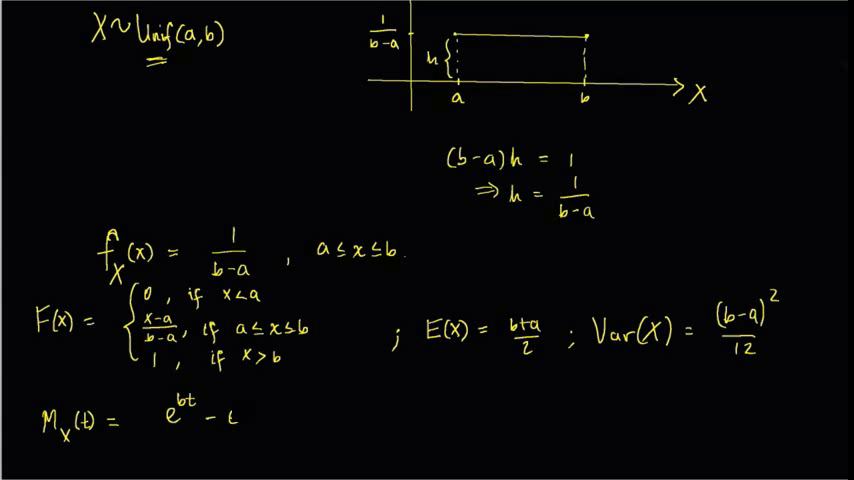 X ~ Unif(a,b)
1/(b-a)
h
a
b
X
(b-a)h = 1
⇒ h = 1/(b-a)
f_X(x) = 1/(b-a) , a ≤ x ≤ b.
F(x) = { 0 , if x < a
(x-a)/(b-a) , if a ≤ x ≤ b
1 , if x > b
; E(X) = (b+a)/2 ; Var(X) = (b-a)^2/12
M_X(t) = e^{bt} -